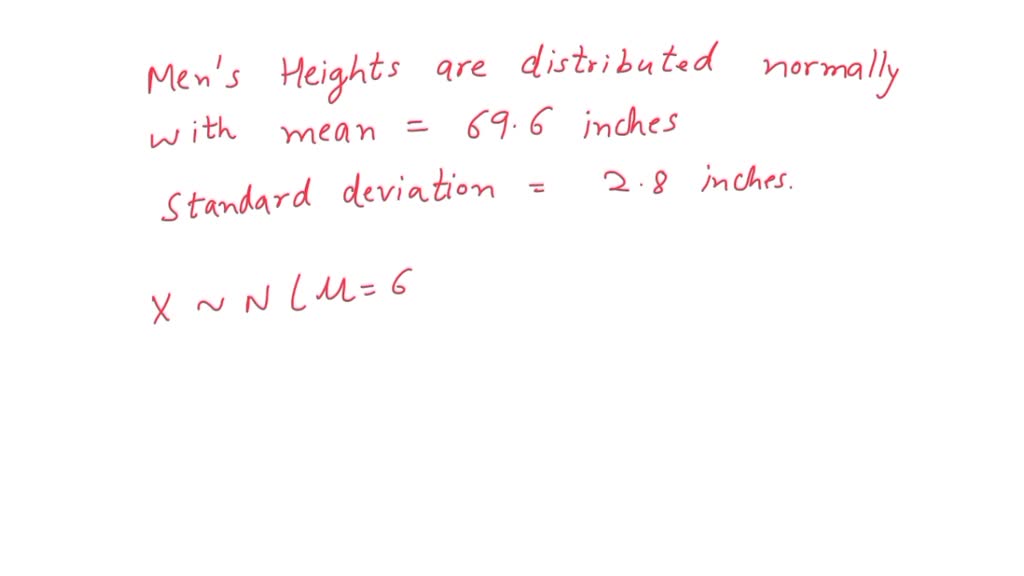 Men's Heights are distributed normally
with mean = 69.6 inches
Standard deviation = 2.8 inches.
X ~ N ( μ = 6